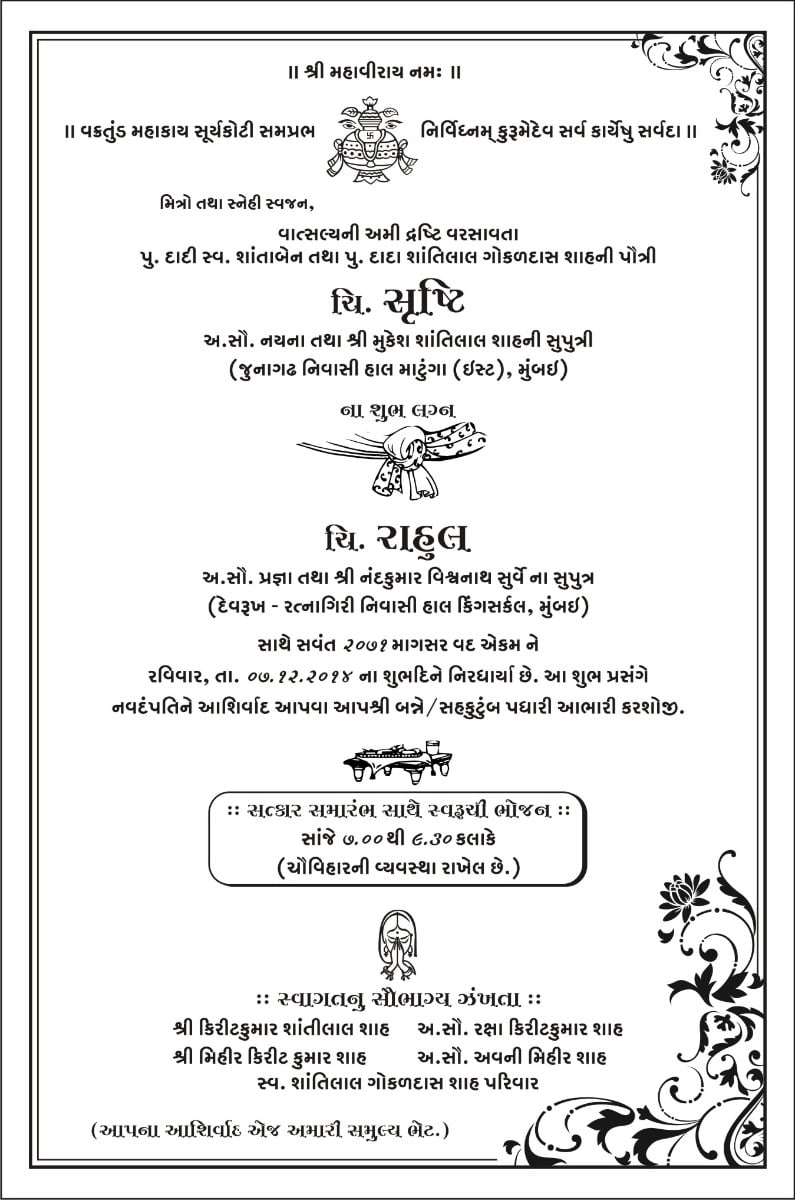 ॥ શ્રી મહાવીરાય નમઃ ॥
॥ વક્રતુંડ મહાકાય સૂર્યકોટી સમપ્રભ નિર્વિઘ્નમ્ કુરૂમેદેવ સર્વ કાર્યેષુ સર્વદા ॥
મિત્રો તથા સ્નેહી સ્વજન,
વાત્સલ્યની અમી દ્રષ્ટિ વરસાવતા
પુ. દાદી સ્વ. શાંતાબેન તથા પુ. દાદા શાંતિલાલ ગોકળદાસ શાહની પૌત્રી
ચિ. સૃષ્ટિ
અ.સૌ. નયના તથા શ્રી મુકેશ શાંતિલાલ શાહની સુપુત્રી
(જુનાગઢ નિવાસી હાલ માટુંગા (ઇસ્ટ), મુંબઇ)
ના શુભ લગ્ન
ચિ. રાહુલ
અ.સૌ. પ્રજ્ઞા તથા શ્રી નંદકુમાર વિશ્વનાથ સુર્વે ના સુપુત્ર
(દેવરૂખ - રત્નાગિરી નિવાસી હાલ કિંગસર્કલ, મુંબઇ)
સાથે સવંત ૨૦૭૧ માગસર વદ એકમ ને
રવિવાર, તા. ૦૭.૧૨.૨૦૧૪ ના શુભદિને નિરધાર્યા છે. આ શુભ પ્રસંગે
નવદંપતિને આશિર્વાદ આપવા આપશ્રી બન્ને/સહકુટુંબ પધારી આભારી કરશોજી.
:: સત્કાર સમારંભ સાથે સ્વરૂચી ભોજન ::
સાંજે ૭.૦૦ થી ૯.૩૦ કલાકે
(ચૌવિહારની વ્યવસ્થા રાખેલ છે.)
:: સ્વાગતનુ સૌભાગ્ય ઝંખતા ::
શ્રી કિરીટકુમાર શાંતીલાલ શાહ અ.સૌ. રક્ષા કિરીટકુમાર શાહ
શ્રી મિહીર કિરીટ કુમાર શાહ અ.સૌ. અવની મિહીર શાહ
સ્વ. શાંતિલાલ ગોકળદાસ શાહ પરિવાર
(આપના આશિર્વાદ એજ અમારી સમુલ્ય ભેટ.)